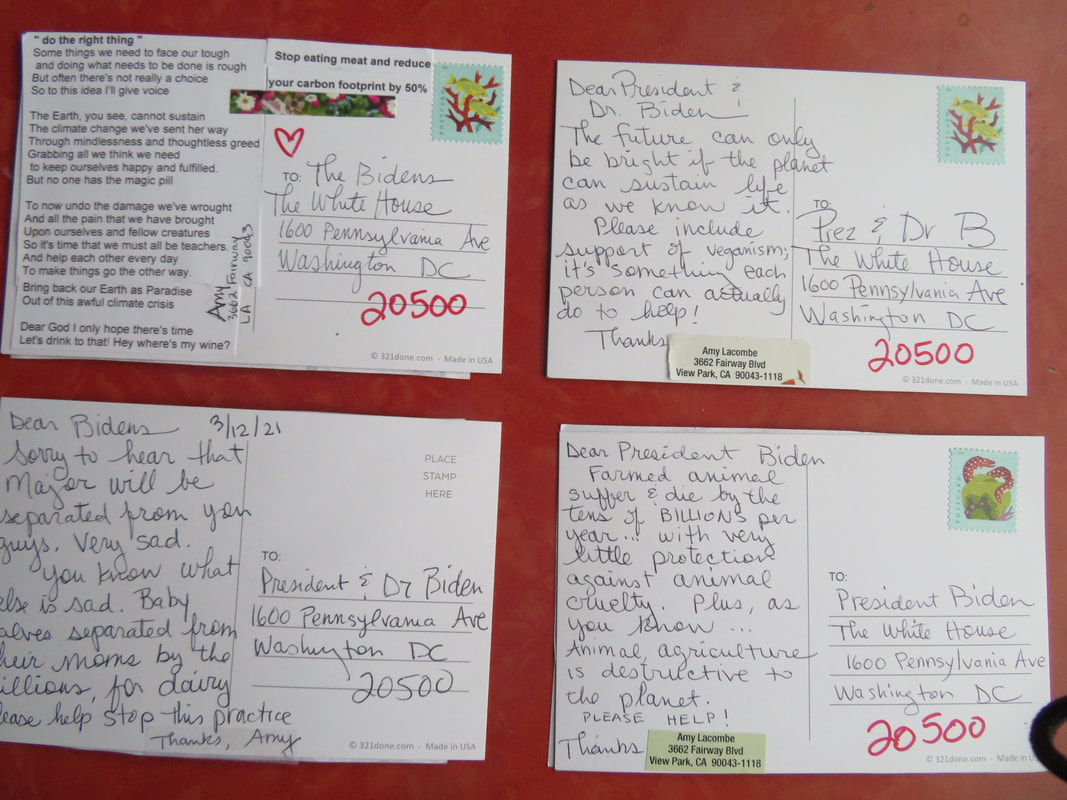 " do the right thing "
Some things we need to face our tough
and doing what needs to be done is rough
But often there's not really a choice
So to this idea I'll give voice
The Earth, you see, cannot sustain
The climate change we've sent her way
Through mindlessness and thoughtless greed
Grabbing all we think we need
to keep ourselves happy and fulfilled.
But no one has the magic pill
To now undo the damage we've wrought
And all the pain that we have brought
Upon ourselves and fellow creatures
So it's time that we must all be teachers.
And help each other every day
To make things go the other way.
Bring back our Earth as Paradise
Out of this awful climate crisis
Dear God I only hope there's time
Let's drink to that! Hey where's my wine?
Amy
3662 Fairway
LA CA 90043
Stop eating meat and reduce
your carbon footprint by 50%
TO: The Bidens
The White House
1600 Pennsylvania Ave
Washington DC
20500
© 321done.com - Made in USA
Dear President &
Dr. Biden!
The future can only
be bright if the planet
can sustain life
as we know it.
Please include
support of veganism;
it's something each
person can actually
do to help!
Thanks
Amy Lacombe
3662 Fairway Blvd
View Park, CA 90043-1118
TO:
Prez & Dr B
The White House
1600 Pennsylvania Ave
Washington DC
20500
© 321done.com - Made in USA
Dear Bidens 3/12/21
Sorry to hear that
Major will be
separated from you
guys. Very sad.
You know what
else is sad. Baby
calves separated from
their moms by the
illions, for dairy
Please help stop this practice
Thanks, Amy
PLACE
STAMP
HERE
TO:
President & Dr Biden
1600 Pennsylvania Ave
Washington DC
20500
© 321done.com - Made in USA
Dear President Biden
Farmed animal
suffer & die by the
tens of BILLIONS per
year... with very
little protection
against animal
cruelty. Plus, as
you know...
Animal agriculture
is destructive to
the planet.
PLEASE HELP!
Thanks
Amy Lacombe
3662 Fairway Blvd
View Park, CA 90043-1118
TO:
President Biden
The White House
1600 Pennsylvania Ave
Washington DC
20500
© 321done.com - Made in USA